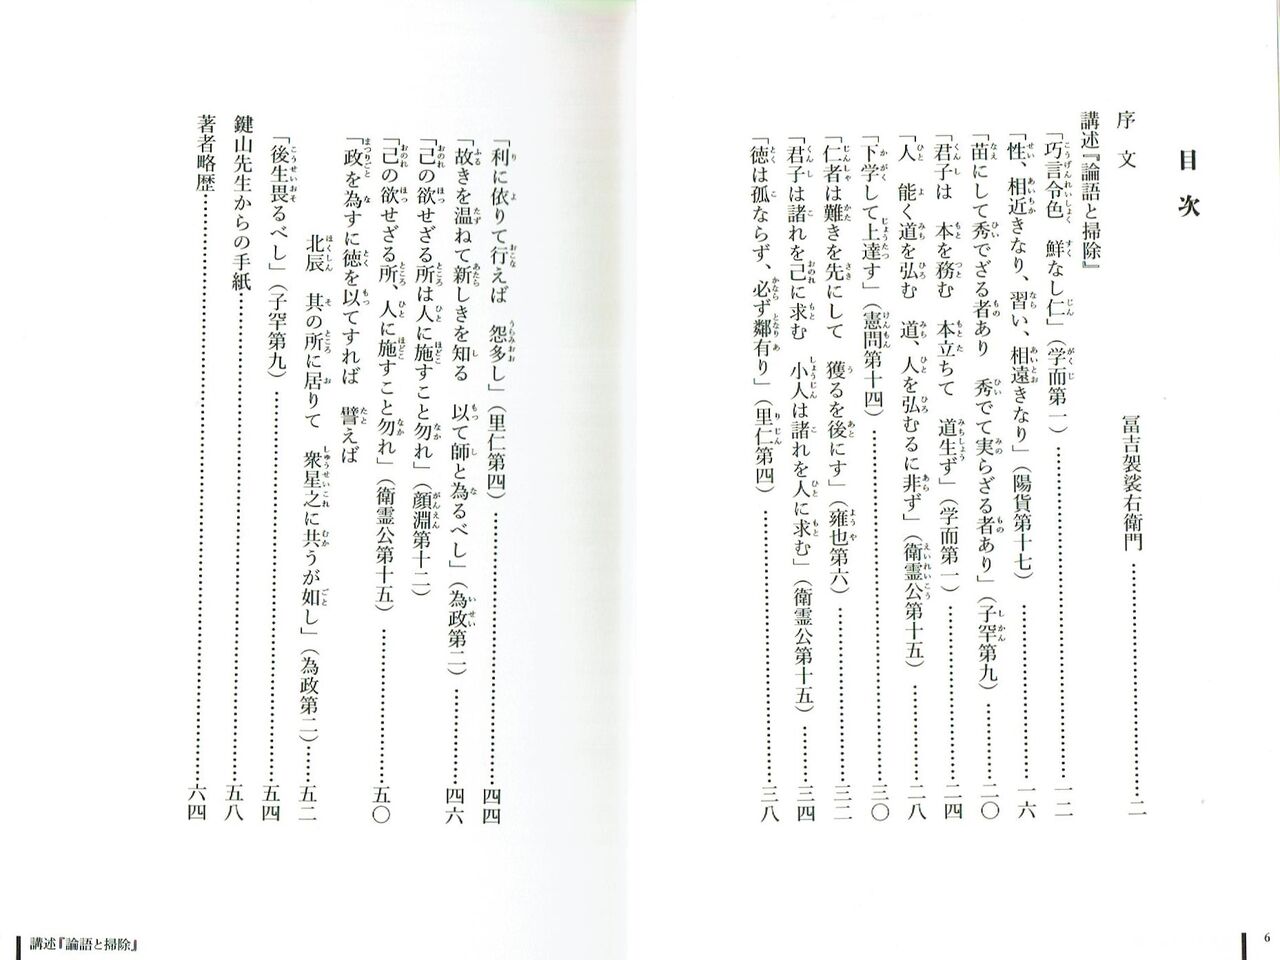 目次
序文　冨吉袈裟右衛門……二
講述『論語と掃除』
「巧言令色　鮮なし仁」（学而第一）……一二
「性、相近きなり、習い、相遠きなり」（陽貨第十七）……一六
「苗にして秀でざる者あり　秀でて実らざる者あり」（子罕第九）……二〇
「君子は　本を務む　本立ちて　道生ず」（学而第一）……二四
「人　能く道を弘む　道、人を弘むるに非ず」（衛霊公第十五）……二八
「下学して上達す」（憲問第十四）……三〇
「仁者は難きを先にして　獲るを後にす」（雍也第六）……三二
「君子は諸れを己に求む　小人は諸れを人に求む」（衛霊公第十五）……三四
「徳は孤ならず、必ず鄰有り」（里仁第四）……三八
6
「利に依りて行えば　怨多し」（里仁第四）……四四
「故きを温ねて新しきを知る　以て師と為るべし」（為政第二）……四六
「己の欲せざる所は人に施すこと勿れ」（顔淵第十二）
「己の欲せざる所、人に施すこと勿れ」（衛霊公第十五）……五〇
「政を為すに徳を以てすれば　譬えば
北辰　其の所に居りて　衆星之に共うが如し」（為政第二）……五二
「後生畏るべし」（子罕第九）……五四
鍵山先生からの手紙……五八
著者略歴……六四
講述『論語と掃除』